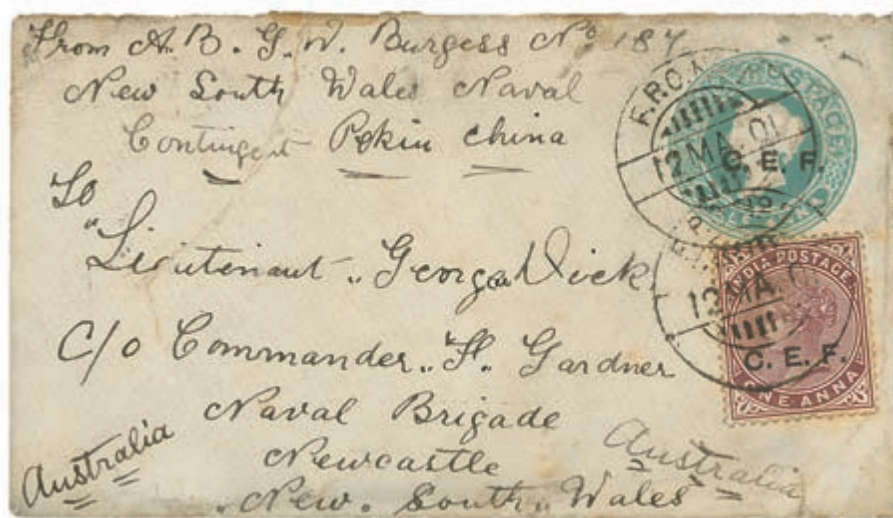 From A. B. G. W. Burgess No 187
New South Wales Naval
Contingent Pekin China
To
"Lieutenant" George Dick
C/o Commander. F. Gardner
Naval Brigade
Newcastle
New South Wales
Australia
Australia
POSTAGE
C. E. F.
F.P.O. No
12 MA. 01
F.P.O. No
12 MA. 01
INDIA POSTAGE
C. E. F.
ONE ANNA